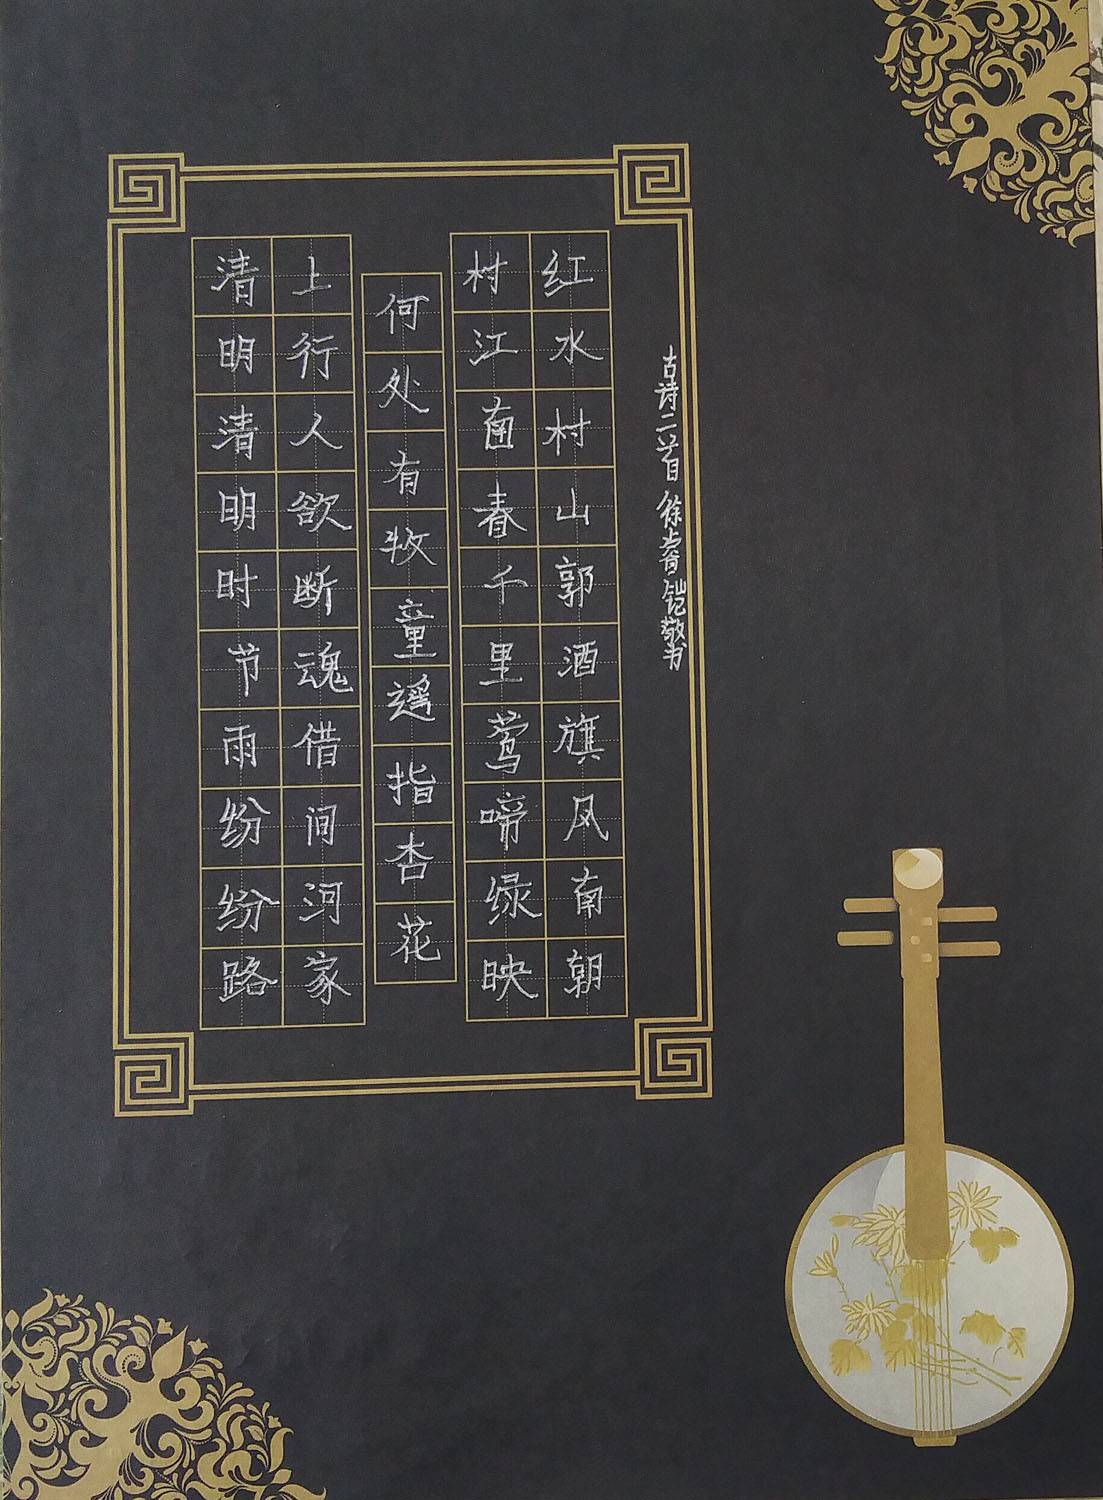 清明清明时节雨纷纷路
上行人欲断魂借间河家
何处有牧童遥指杏花
村江南春千里莺啼绿映
红水村山郭酒旗风南朝
古诗二首 徐 铠敬书